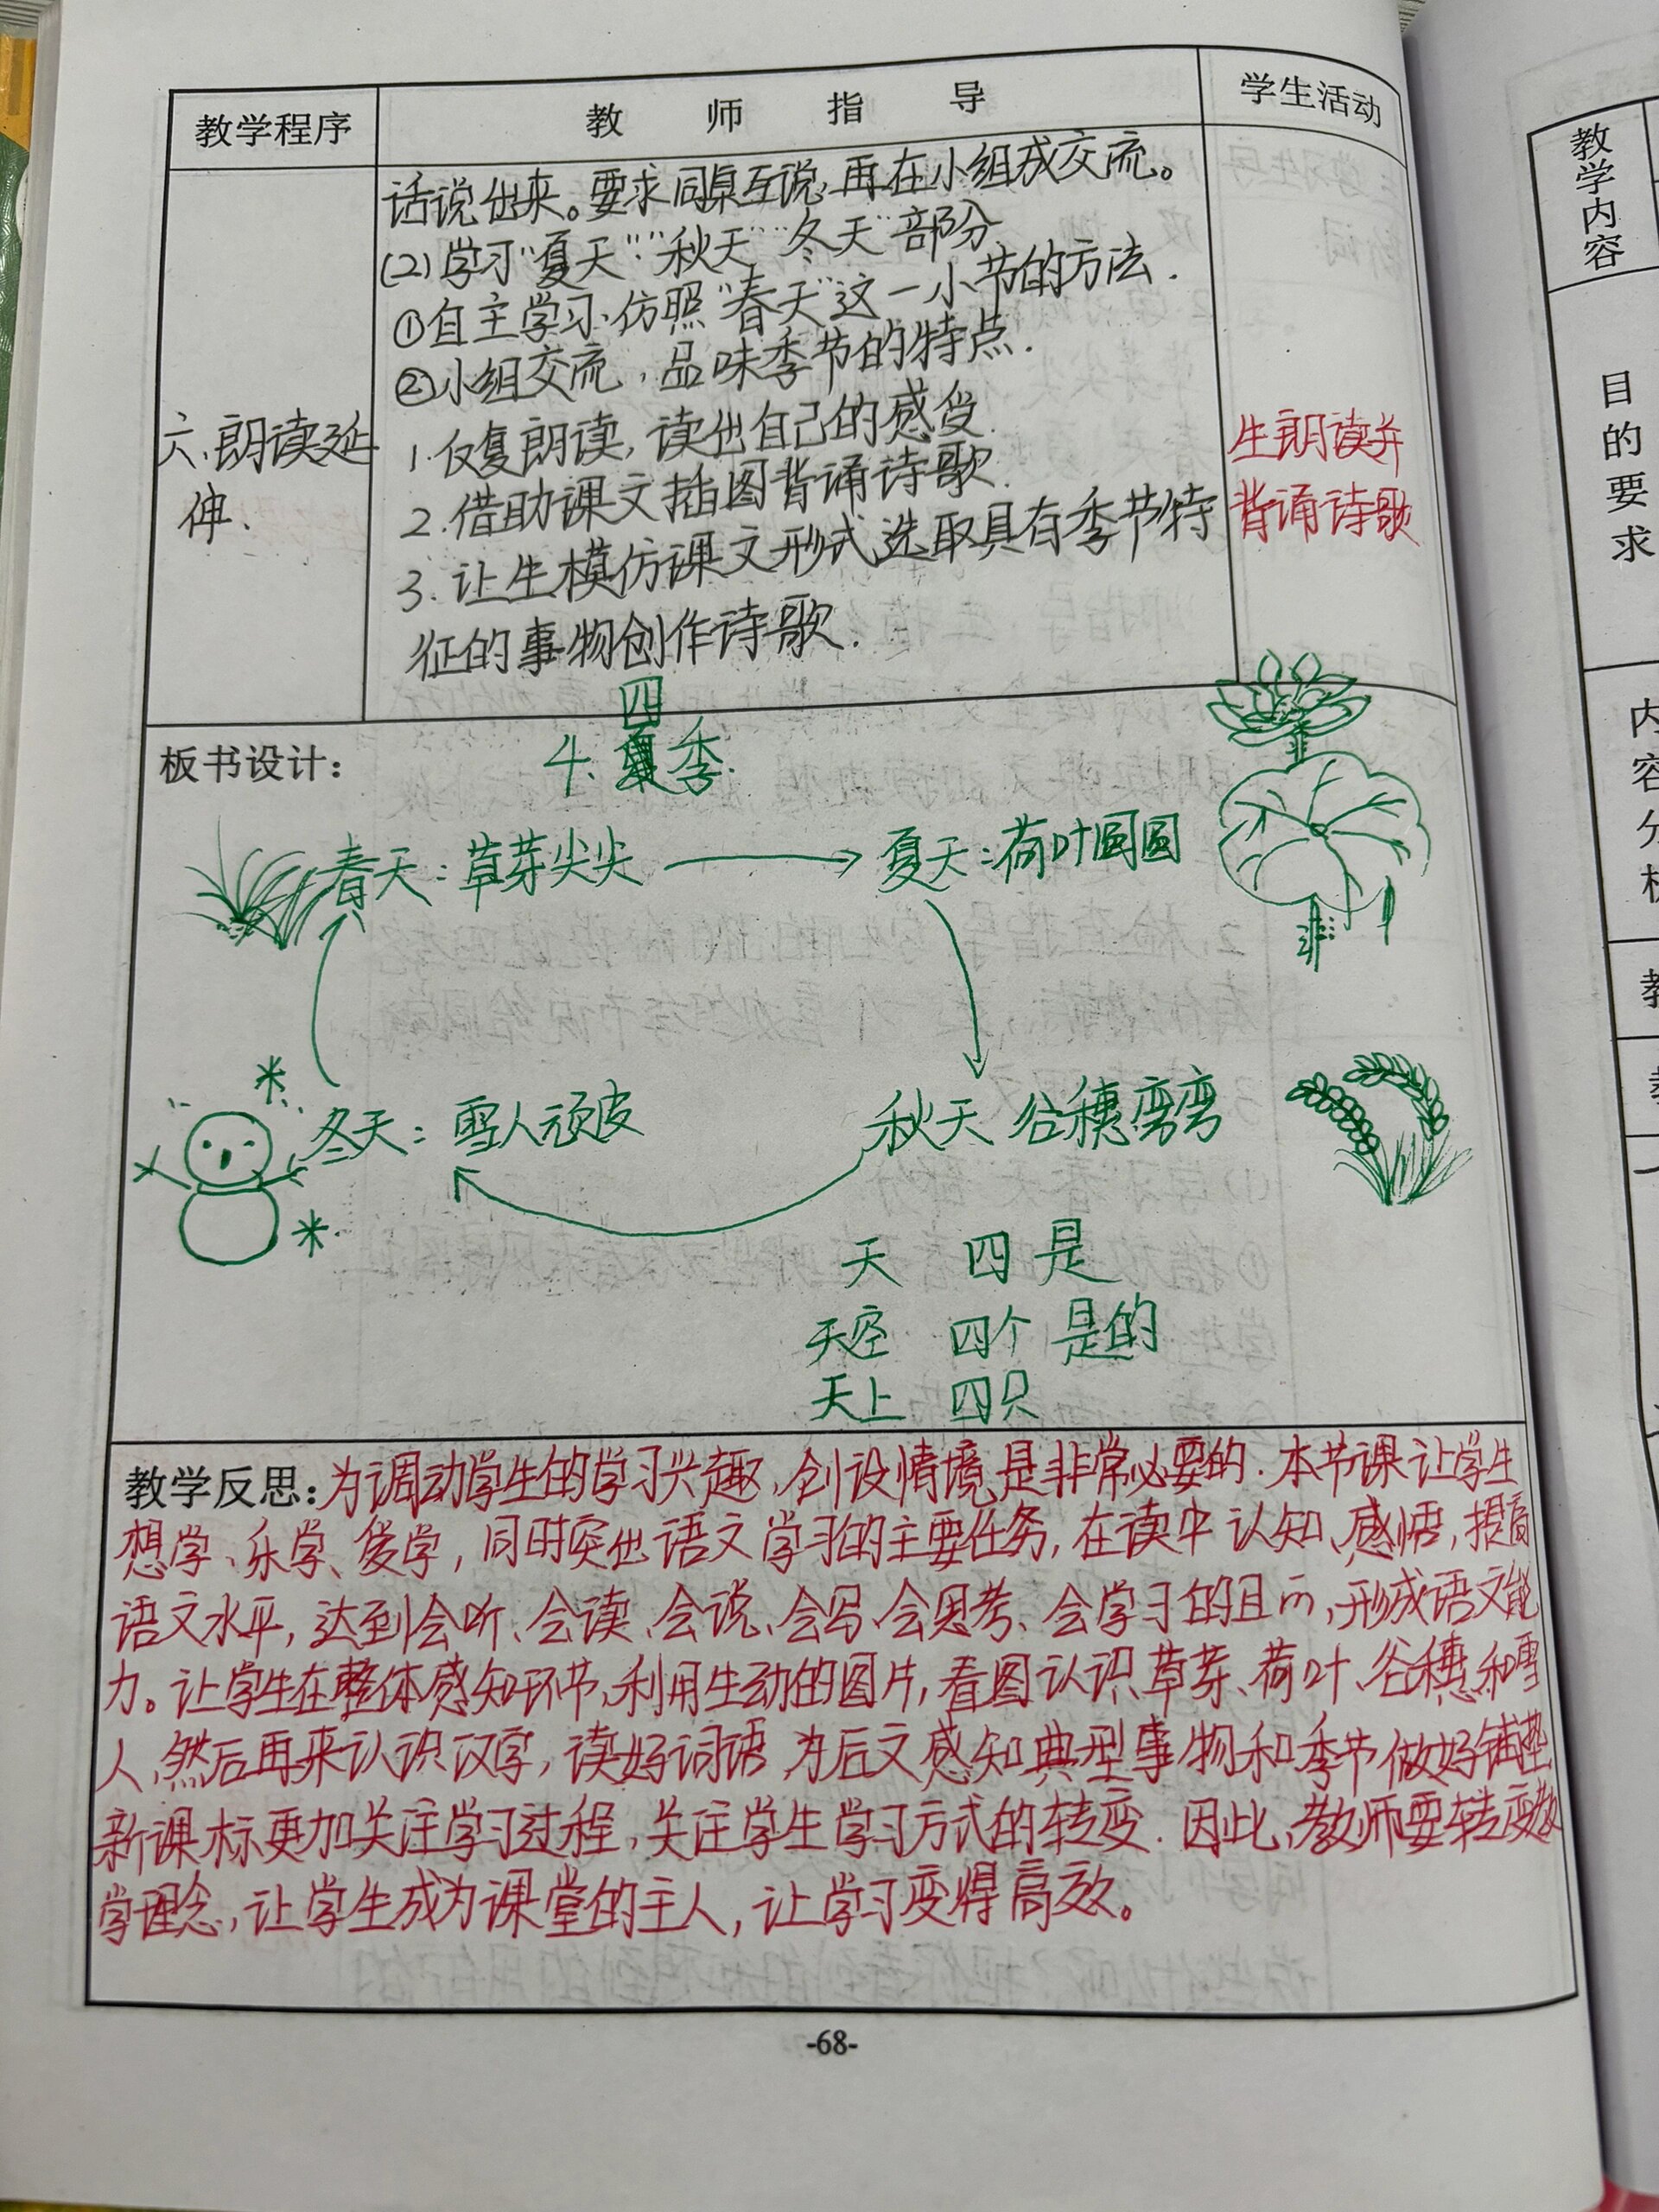 教学程序
教 师 指 导
学生活动
话说出来。要求同桌互说,再在小组或交流。
(2)学习“夏天”“秋天”“冬天”部分
①自主学习、仿照“春天”这一小节的方法.
②小组交流,品味季节的特点.
六、朗读延
伸.
1.反复朗读,读出自己的感受.
2.借助课文插图背诵诗歌.
3.让生模仿课文形式选取具有季节特
征的事物创作诗歌.
生朗读并
背诵诗歌
板书设计:
四
4. 季.
春天:草芽尖尖
夏天:荷叶圆圆
冬天:雪人顽皮
秋天 谷穗弯弯
天 四 是
天空 四个 是的
天上 四只
教学反思:为调动学生的学习兴趣,创设情境是非常必要的.本节课让学生
想学、乐学、爱学,同时突出语文学习的主要任务,在读中认知、感悟,提高
语文水平,达到会听、会读、会说、会写、会思考、会学习的目的,形成语文能
力。让学生在整体感知环节,利用生动的图片,看图认识草芽、荷叶、谷穗和雪
人,然后再来认识汉字,读好词语,为后文感知典型事物和季节做好铺垫
新课标更加关注学习过程,关注学生学习方式的转变.因此,教师要转变教
学理念,让学生成为课堂的主人,让学习变得高效。
-68-
教学内容
目的要求
内容分析